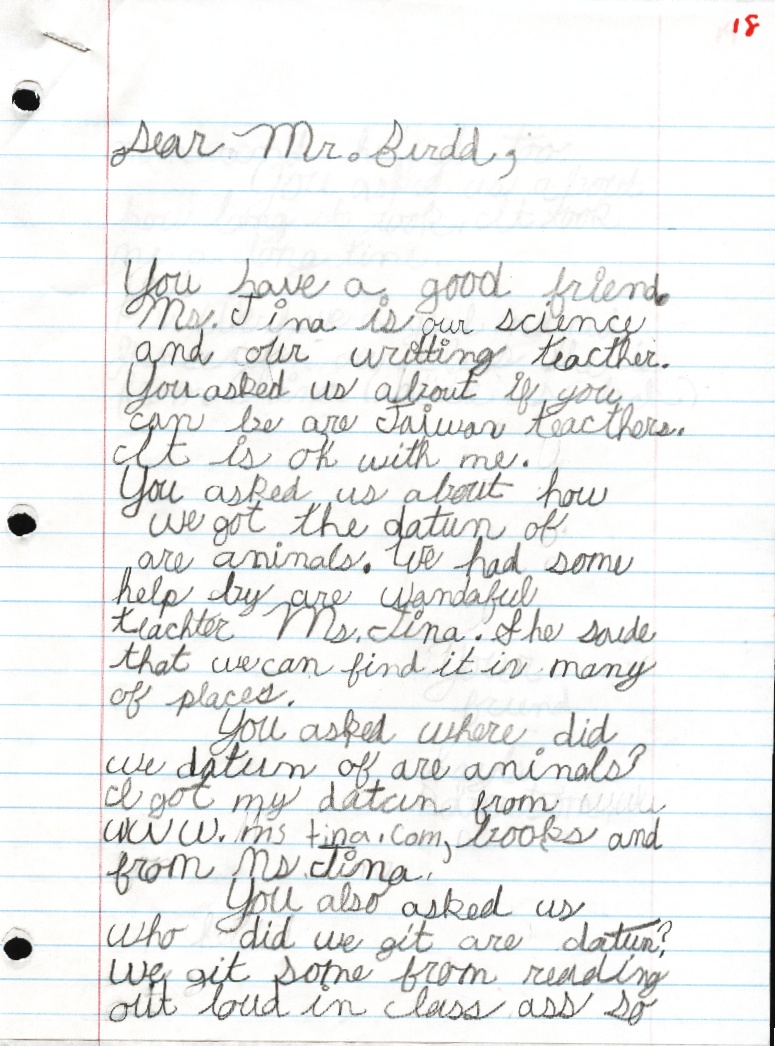 18
Dear Mr. Birdd,
You have a good friend.
Ms. Tina is our science
and our writting teacther.
You asked us about if you
can be are Taiwan teacthers.
It is ok with me.
You asked us about how
we got the datum of
are aninals. We had some
help by are wandaful
teachter Ms. Tina. She saide
that we can find it in many
of places.
You asked where did
we datum of are aninals?
I got my datum from
www.mstina.com, books and
from Ms Tina.
You also asked us
who did we git are datum?
We git some from reading
out loud in class ass so